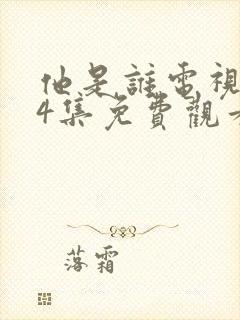 他是誰電視
4集免費觀
落霜